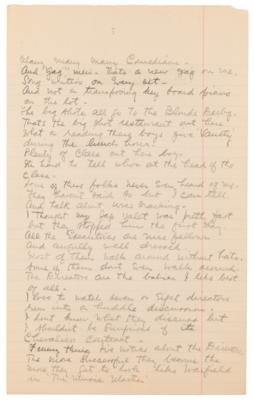 Many many many Comedians -
And Gag men - thats a new gag on me.
Song writers on every set -
And not a transposing key board piano
on the lot -
The big shots all go to the Blonde Derby.
Thats the big shot restaurant out here
What a reading they boys give
during the lunch hour.
Plenty of Class out here boys.
Its hard to tell whos at the head of the
class -
Some of these folks never even heard of me.
They havent said so but I can tell
And talk about wise cracking.
I thought my Gag was pretty fast
but they stopped me the first day
All the Executives are nice fellows
and awfully well dressed.
Most of them walk around without hats.
Some of them dont even walk around.
The Directors are the babies I like best
of all -
I love to watch seven or eight directors
run into a huddle discussion.
I dont know what they discuss but
I shouldnt be surprised if its
Chevaliers Contract.
Funny thing Ive notice about the
The more successful they become the
more they get to look like Warfield
in "The Music Master"